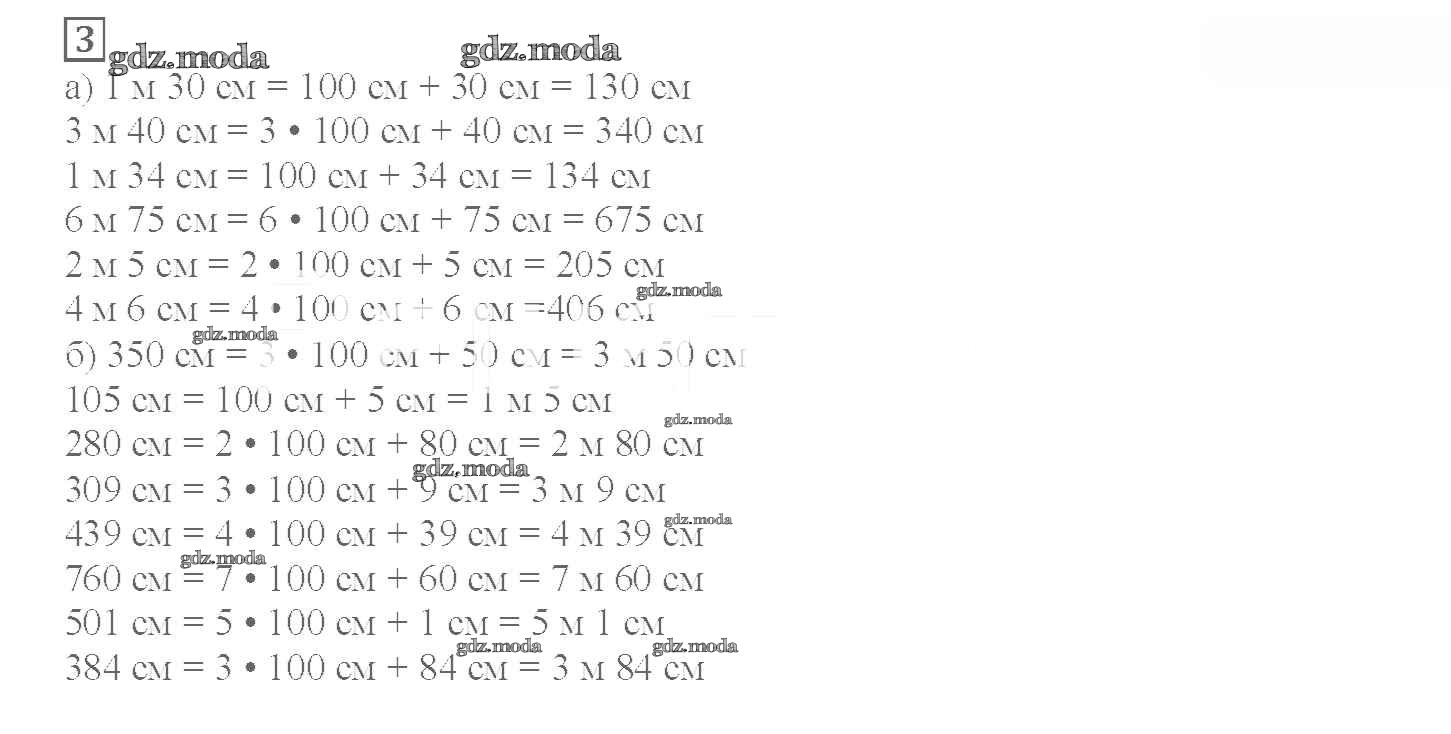 3
gdz.moda gdz.moda
а) 1 м 30 см = 100 см + 30 см = 130 см
3 м 40 см = 3 • 100 см + 40 см = 340 см
1 м 34 см = 100 см + 34 см = 134 см
6 м 75 см = 6 • 100 см + 75 см = 675 см
2 м 5 см = 2 • 100 см + 5 см = 205 см
gdz.moda
4 м 6 см = 4 • 100 см + 6 см =406 см
gdz.moda
б) 350 см = 3 • 100 см + 50 см = 3 м 50 см
105 см = 100 см + 5 см = 1 м 5 см
gdz.moda
280 см = 2 • 100 см + 80 см = 2 м 80 см
gdz.moda
309 см = 3 • 100 см + 9 см = 3 м 9 см
gdz.moda
439 см = 4 • 100 см + 39 см = 4 м 39 см
gdz.moda
760 см = 7 • 100 см + 60 см = 7 м 60 см
501 см = 5 • 100 см + 1 см = 5 м 1 см
gdz.moda gdz.moda
384 см = 3 • 100 см + 84 см = 3 м 84 см